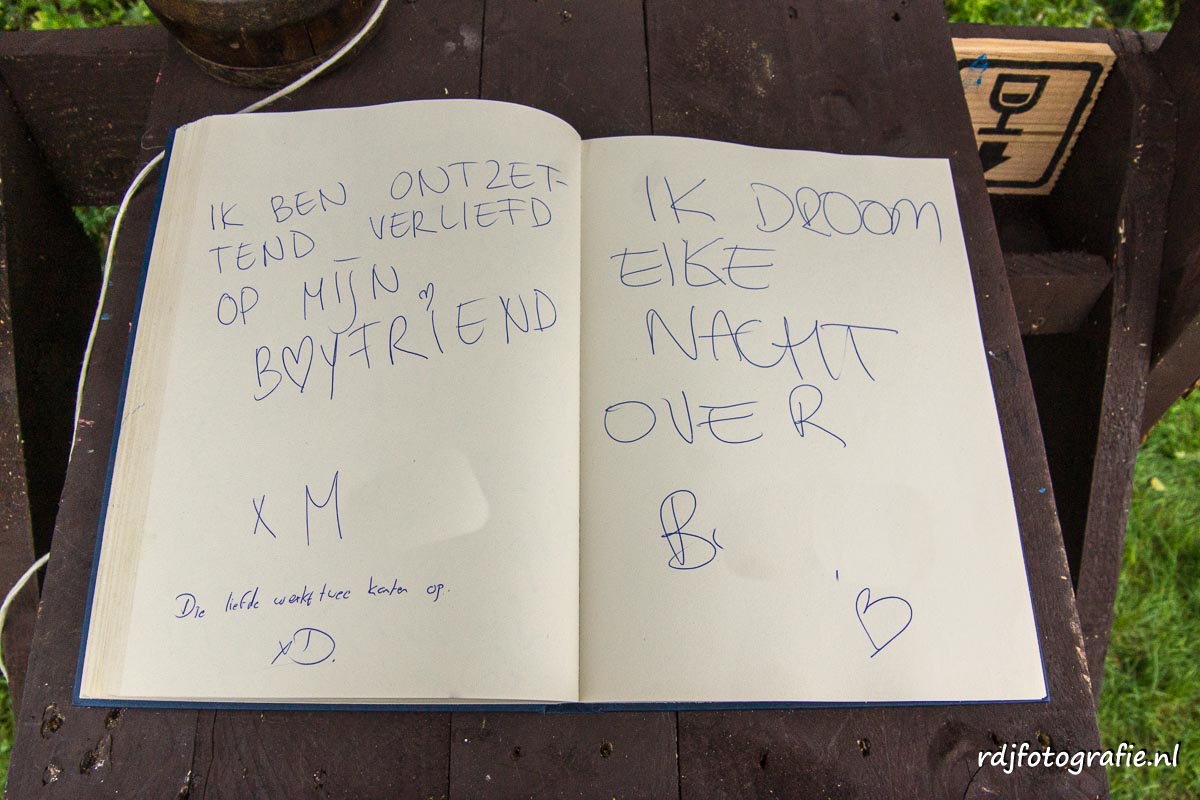 IK BEN ONTZET-
TEND VERLIEFD
OP MIJN
BOYFRIEND
X M
Die liefde werkt twee kanten op.
xD.
IK DROOM
ELKE
NACHT
OVER
B
rdjfotografie.nl